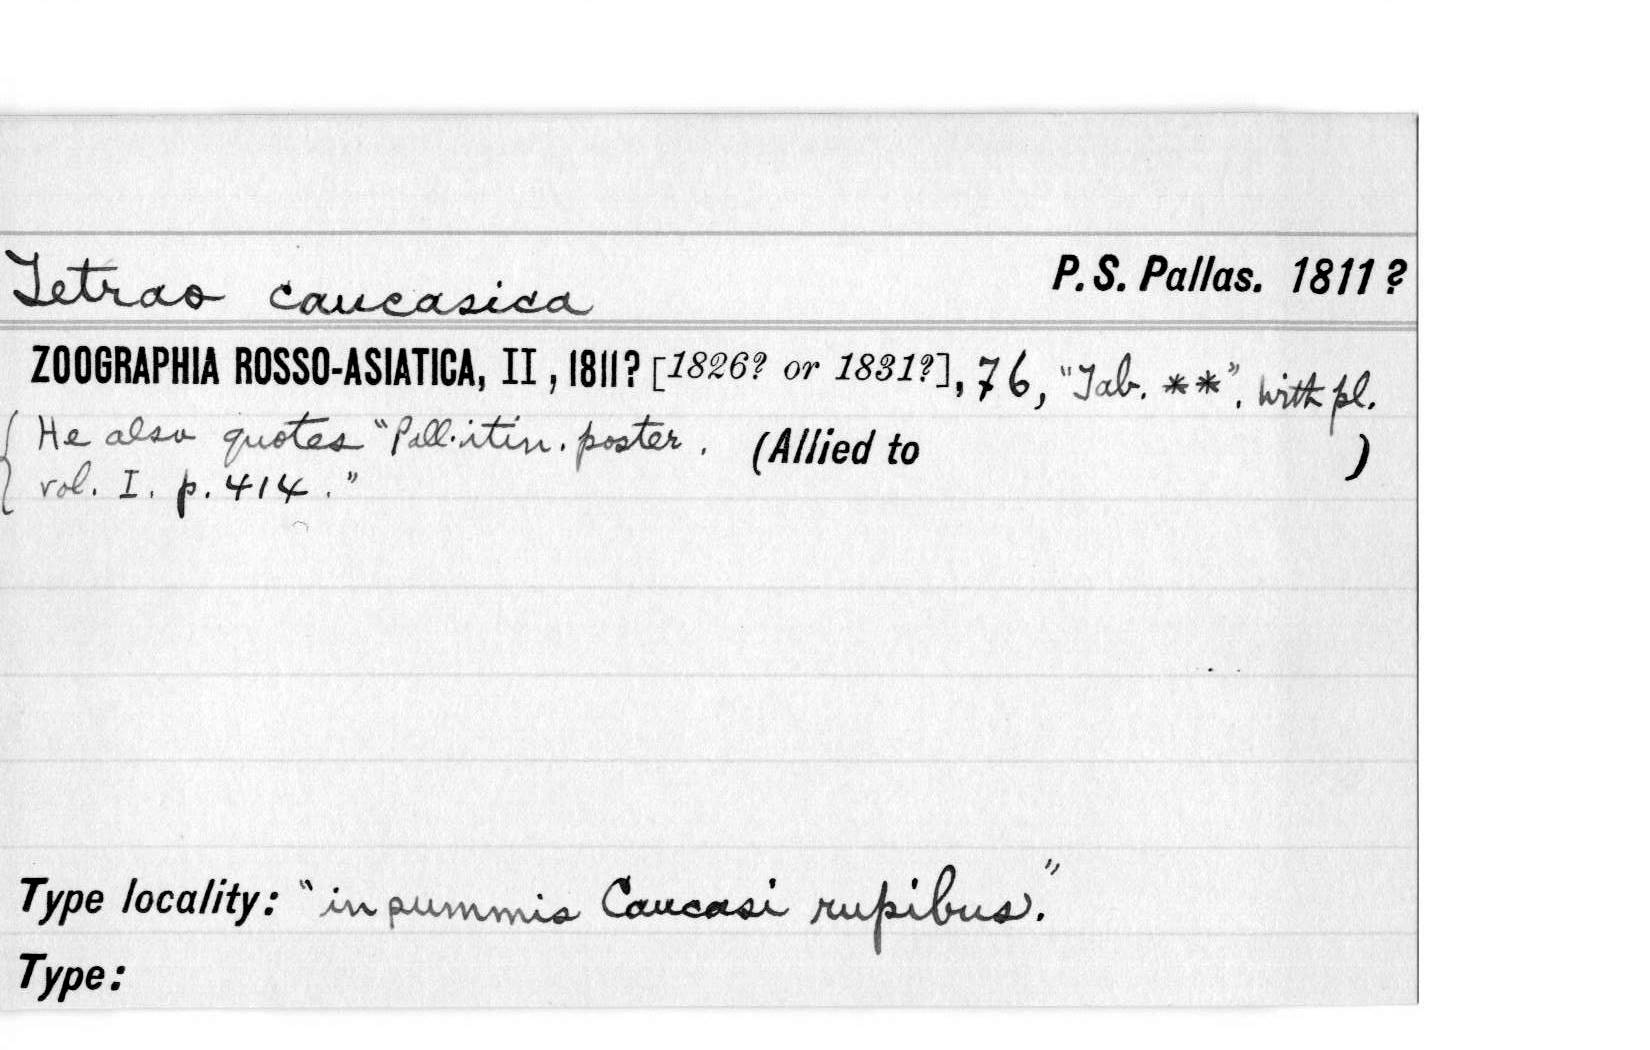 Tetrao caucasica P.S. Pallas. 1811?
ZOOGRAPHIA ROSSO-ASIATICA, II, 1811? [1826? or 1831?], 76, "Tab. **". with pl.
{ He also quotes "Pall. itin. poster. (Allied to )
vol. I. p. 414."
Type locality: "in summis Caucasi rupibus."
Type: